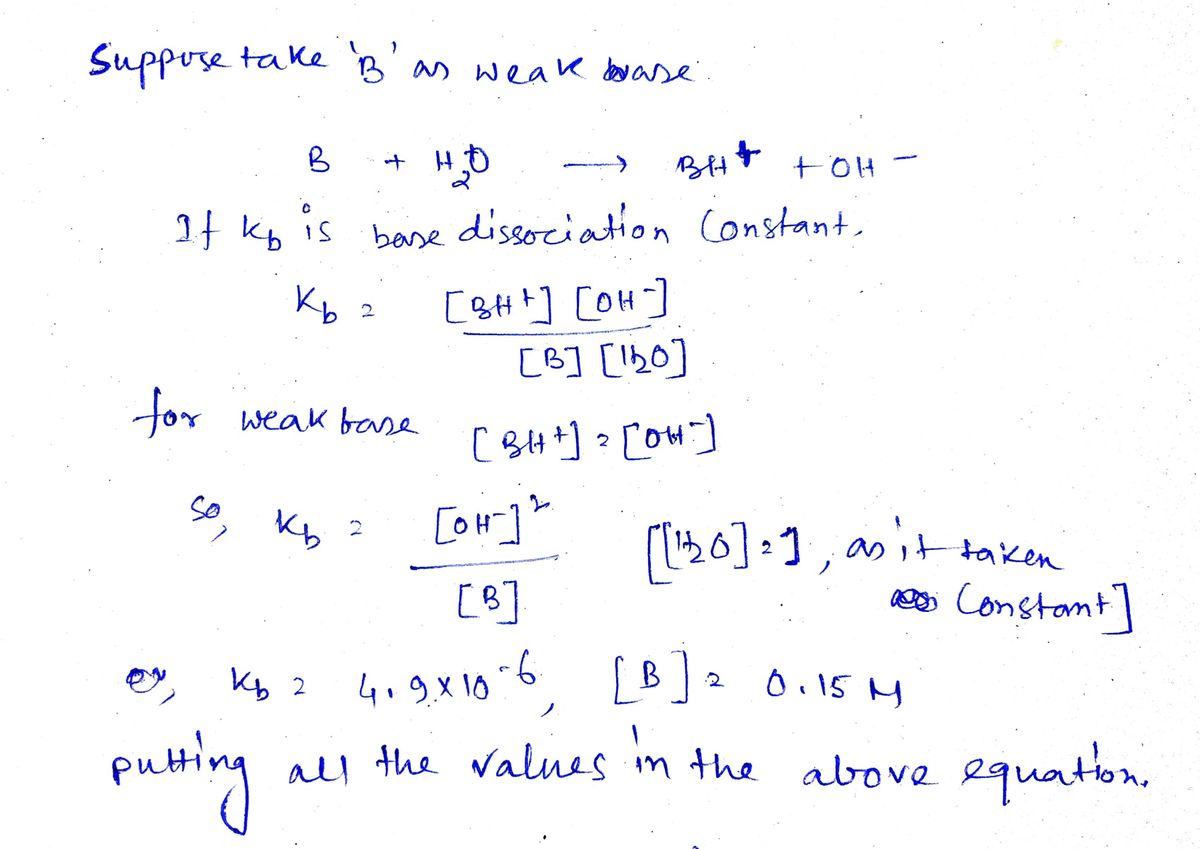 Suppose take 'B' as weak base.
B + H2O → BH+ + OH-
If Kb is base dissociation Constant.
Kb = [BH+] [OH-]
[B] [H2O]
for weak base [BH+] = [OH-]
So, Kb = [OH-]2 [[H2O] = 1, as it taken
[B] Constant]
Kb = 4.9×10-6, [B] = 0.15 M
putting all the values in the above equation.